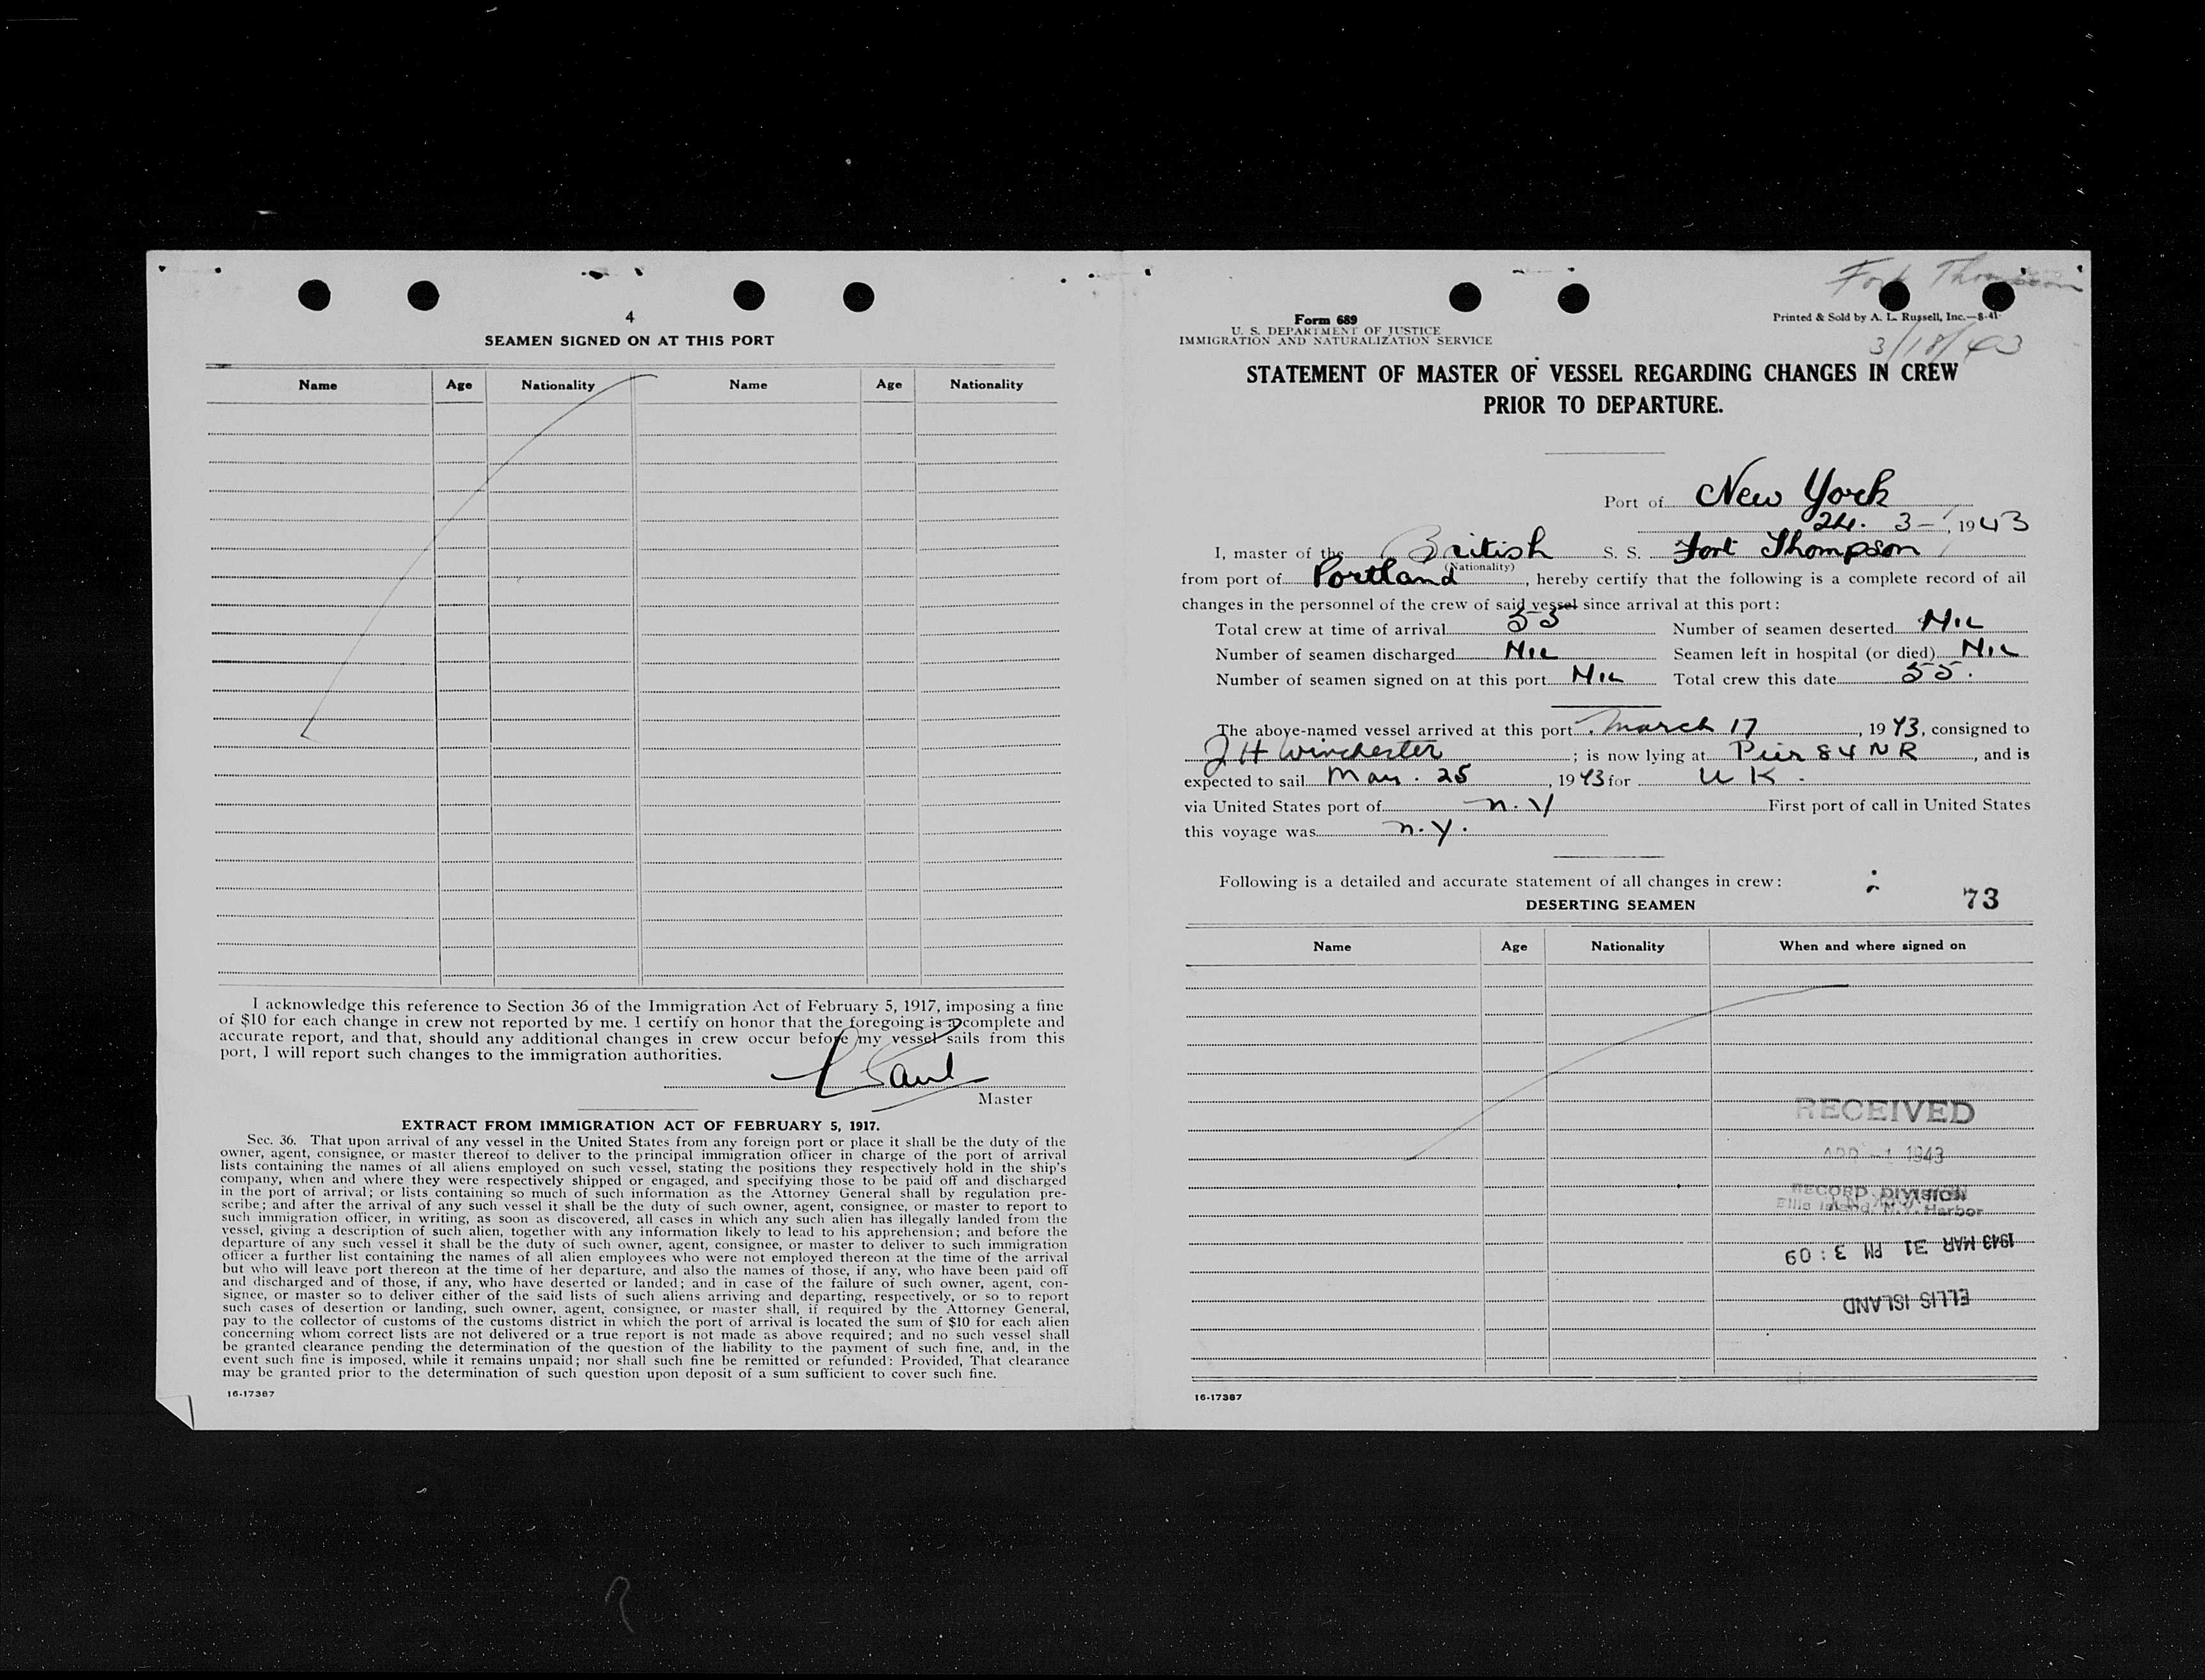 4
SEAMEN SIGNED ON AT THIS PORT
Name Age Nationality Name Age Nationality
I acknowledge this reference to Section 36 of the Immigration Act of February 5, 1917, imposing a fine
of $10 for each change in crew not reported by me. I certify on honor that the foregoing is a complete and
accurate report, and that, should any additional changes in crew occur before my vessel sails from this
port, I will report such changes to the immigration authorities.
Master
EXTRACT FROM IMMIGRATION ACT OF FEBRUARY 5, 1917.
Sec. 36. That upon arrival of any vessel in the United States from any foreign port or place it shall be the duty of the
owner, agent, consignee, or master thereof to deliver to the principal immigration officer in charge of the port of arrival
lists containing the names of all aliens employed on such vessel, stating the positions they respectively hold in the ship's
company, when and where they were respectively shipped or engaged, and specifying those to be paid off and discharged
in the port of arrival; or lists containing so much of such information as the Attorney General shall by regulation pre-
scribe; and after the arrival of any such vessel it shall be the duty of such owner, agent, consignee, or master to report to
such immigration officer, in writing, as soon as discovered, all cases in which any such alien has illegally landed from the
vessel, giving a description of such alien, together with any information likely to lead to his apprehension; and before the
departure of any such vessel it shall be the duty of such owner, agent, consignee, or master to deliver to such immigration
officer a further list containing the names of all alien employees who were not employed thereon at the time of the arrival
but who will leave port thereon at the time of her departure, and also the names of those, if any, who have been paid off
and discharged and of those, if any, who have deserted or landed; and in case of the failure of such owner, agent, con-
signee, or master so to deliver either of the said lists of such aliens arriving and departing, respectively, or so to report
such cases of desertion or landing, such owner, agent, consignee, or master shall, if required by the Attorney General,
pay to the collector of customs of the customs district in which the port of arrival is located the sum of $10 for each alien
concerning whom correct lists are not delivered or a true report is not made as above required; and no such vessel shall
be granted clearance pending the determination of the question of the liability to the payment of such fine, and, in the
event such fine is imposed, while it remains unpaid; nor shall such fine be remitted or refunded: Provided, That clearance
may be granted prior to the determination of such question upon deposit of a sum sufficient to cover such fine.
16-17387
Fort Thompson
Form 689
U. S. DEPARTMENT OF JUSTICE
IMMIGRATION AND NATURALIZATION SERVICE
Printed & Sold by A. L. Russell, Inc.—8-41
3/18/43
STATEMENT OF MASTER OF VESSEL REGARDING CHANGES IN CREW
PRIOR TO DEPARTURE.
Port of New York
24. 3- , 1943
I, master of the British S. S. Fort Thompson
(Nationality)
from port of Portland, hereby certify that the following is a complete record of all
changes in the personnel of the crew of said vessel since arrival at this port:
Total crew at time of arrival 55 Number of seamen deserted Nil
Number of seamen discharged Nil Seamen left in hospital (or died) Nil
Number of seamen signed on at this port Nil Total crew this date 55.
The above-named vessel arrived at this port March 17, 1943, consigned to
J H Winchester; is now lying at Pier 84 N R, and is
expected to sail Mar. 25, 1943 for U K.
via United States port of N.Y First port of call in United States
this voyage was N.Y.
Following is a detailed and accurate statement of all changes in crew:
73
DESERTING SEAMEN
Name Age Nationality When and where signed on
RECEIVED
APR -1 1943
RECORD DIVISION
Ellis Island, N.Y. Harbor
1943 MAR 31 PM 3:09
ELLIS ISLAND
16-17387